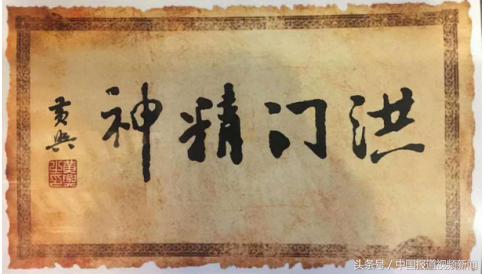 洪门精神
黄兴
头条号／中国报道视频新闻